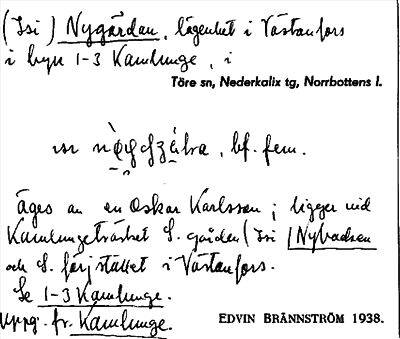 (Isi) Nygården, lägenhet i Västanfors
i byn 1-3 Kamlunge, i
Töre sn, Nederkalix tg, Norrbottens l.
bf. fem.
Äges av en Oskar Karlsson; ligger vid
Kamlungeträsket S. gården (Isi) Nybadsen
och S. färjstället i Västanfors.
Se 1-3 Kamlunge.
Uppg. fr. Kamlunge.
EDVIN BRÄNNSTRÖM 1938.